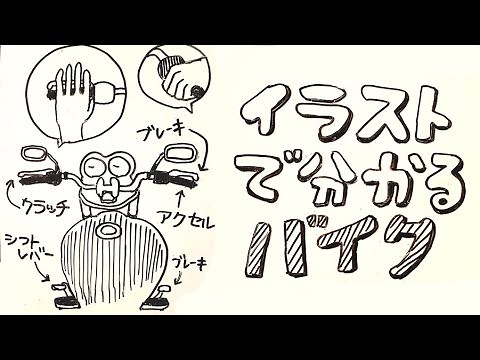 イラスト
で分かる
バイク
ブレーキ
クラッチ
アクセル
シフト
レバー
ブレーキ